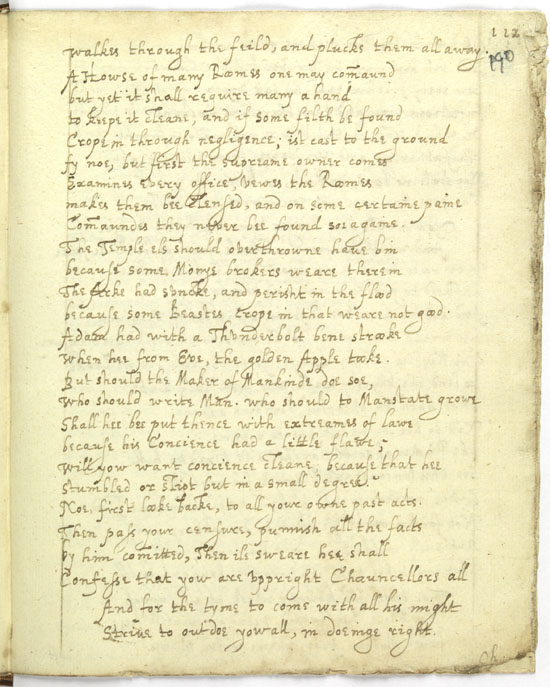 112
190
walkes through the feild, and plucks them all away.
A Howse of many Roomes one may comaund
but yet it shall require many a hand
to keepe it cleane, and if some filth be found
Crope in through negligence; ist cast to the ground
fy noe, but first the supreame owner comes
Examines every office, vewes the Roomes
makes them bee Clensed, and on some certaine paine
Comaundes they never bee found soe againe.
The Temple els should overthrowne have bin
because some Monye brokers weare therein
The Arke had suncke, and perisht in the flood
because some Beastes crope in that weare not good.
Adam had with a Thunderbolt bene strooke
when hee from Eve, the golden Apple tooke.
But should the Maker of Mankinde doe soe,
who should write Man. who should to Manstate growe
Shall hee bee put thence with extreames of lawe
because his Concience had a little flawe;
will yow want concience cleane, because that hee
stumbled or slipt but in a small degree.
Noe, first looke backe, to all your owne past acts.
Then pass your censure, punnish all the facts
by him comitted, Then ile sweare hee shall
Confesse that yow are vppright Chauncellors all
And for the tyme to come with all his might
Strive to outdoe yow all, in doeinge right.